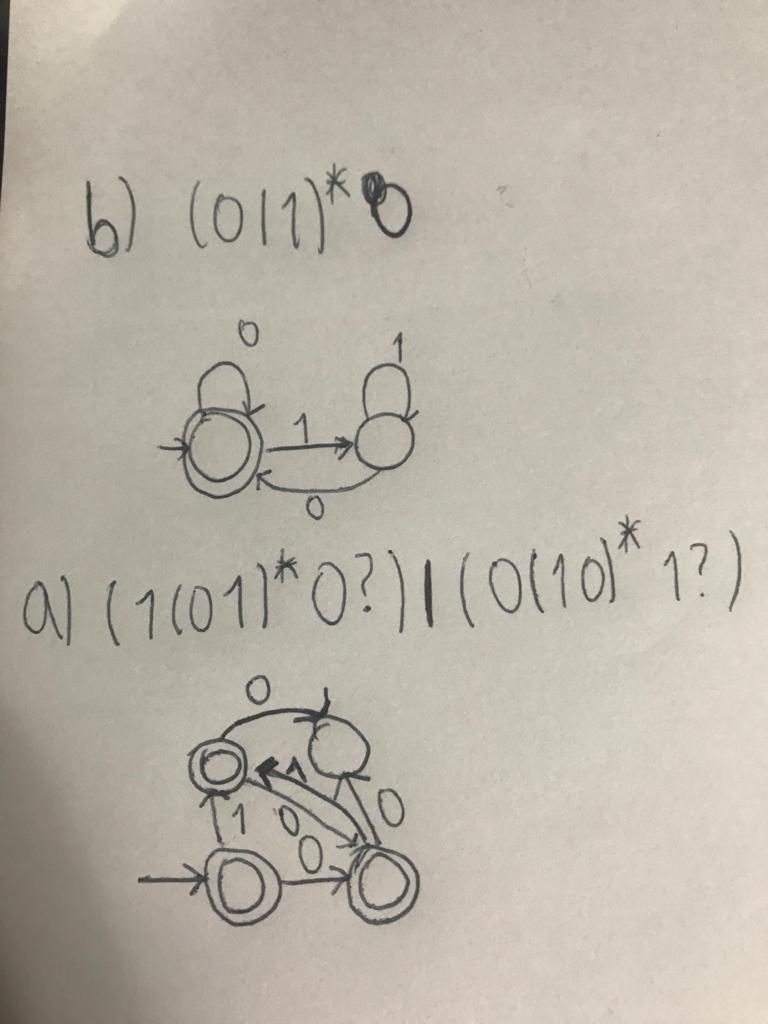 b) (0|1)* 0
0 1
1
0
a) (1(01)* 0?) | (0(10)* 1?)
0
1
1 0 0
0